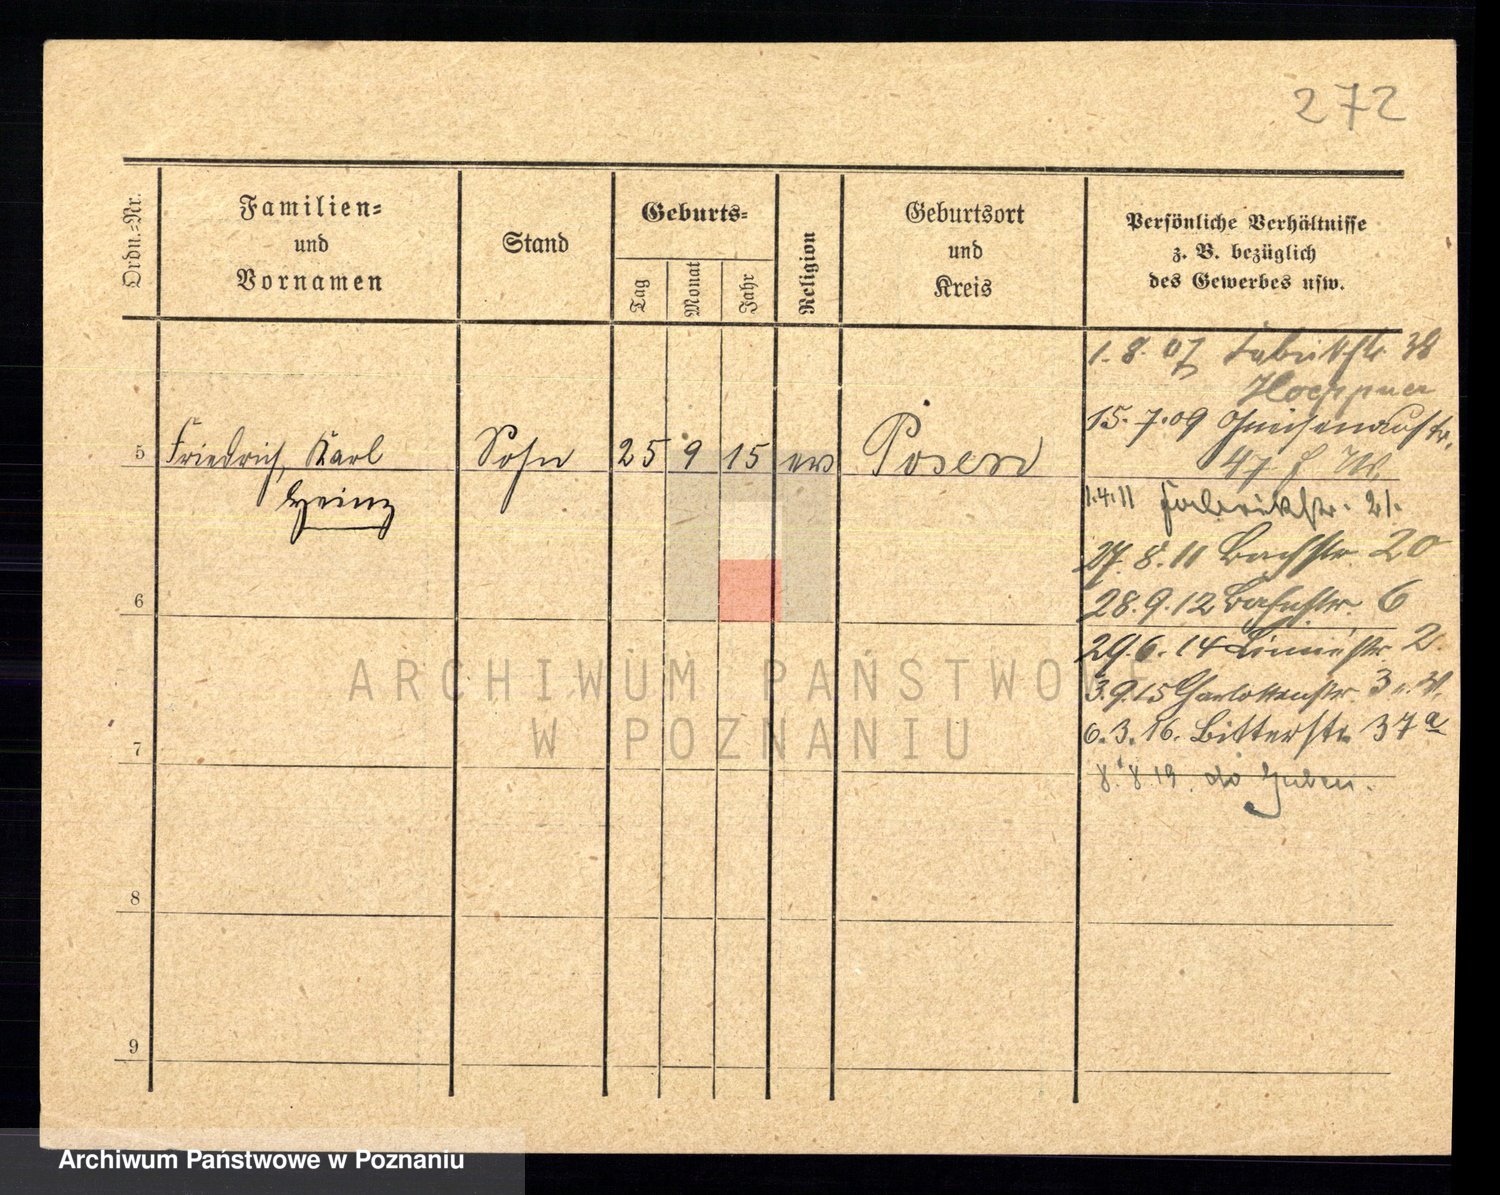 272
Ordn.-Nr.
Familien-
und
Vornamen
Stand
Geburts-
Tag
Monat
Jahr
Religion
Geburtsort
und
Kreis
Persönliche Verhältnisse
z. B. bezüglich
des Gewerbes usw.
1. 8. 07 Fabrikstr. 38
Hoeppner
15. 7. 09 Gneisenaustr.
47
5 Friedrich, Karl Sohn 25 9 15 ev Posen
Heinz
1.4.11 Fabrikstr. 21.
27. 8. 11 Bachstr. 20
6
28. 9. 12 Bahnstr. 6
29. 6. 14 Linienstr. 2.
3. 9. 15 Charlottenstr. 3
6. 3. 16. Bitterstr. 37a
7
8. 8. 19. Guben.
8
9
ARCHIWUM PAŃSTWOWE
W POZNANIU
Archiwum Państwowe w Poznaniu